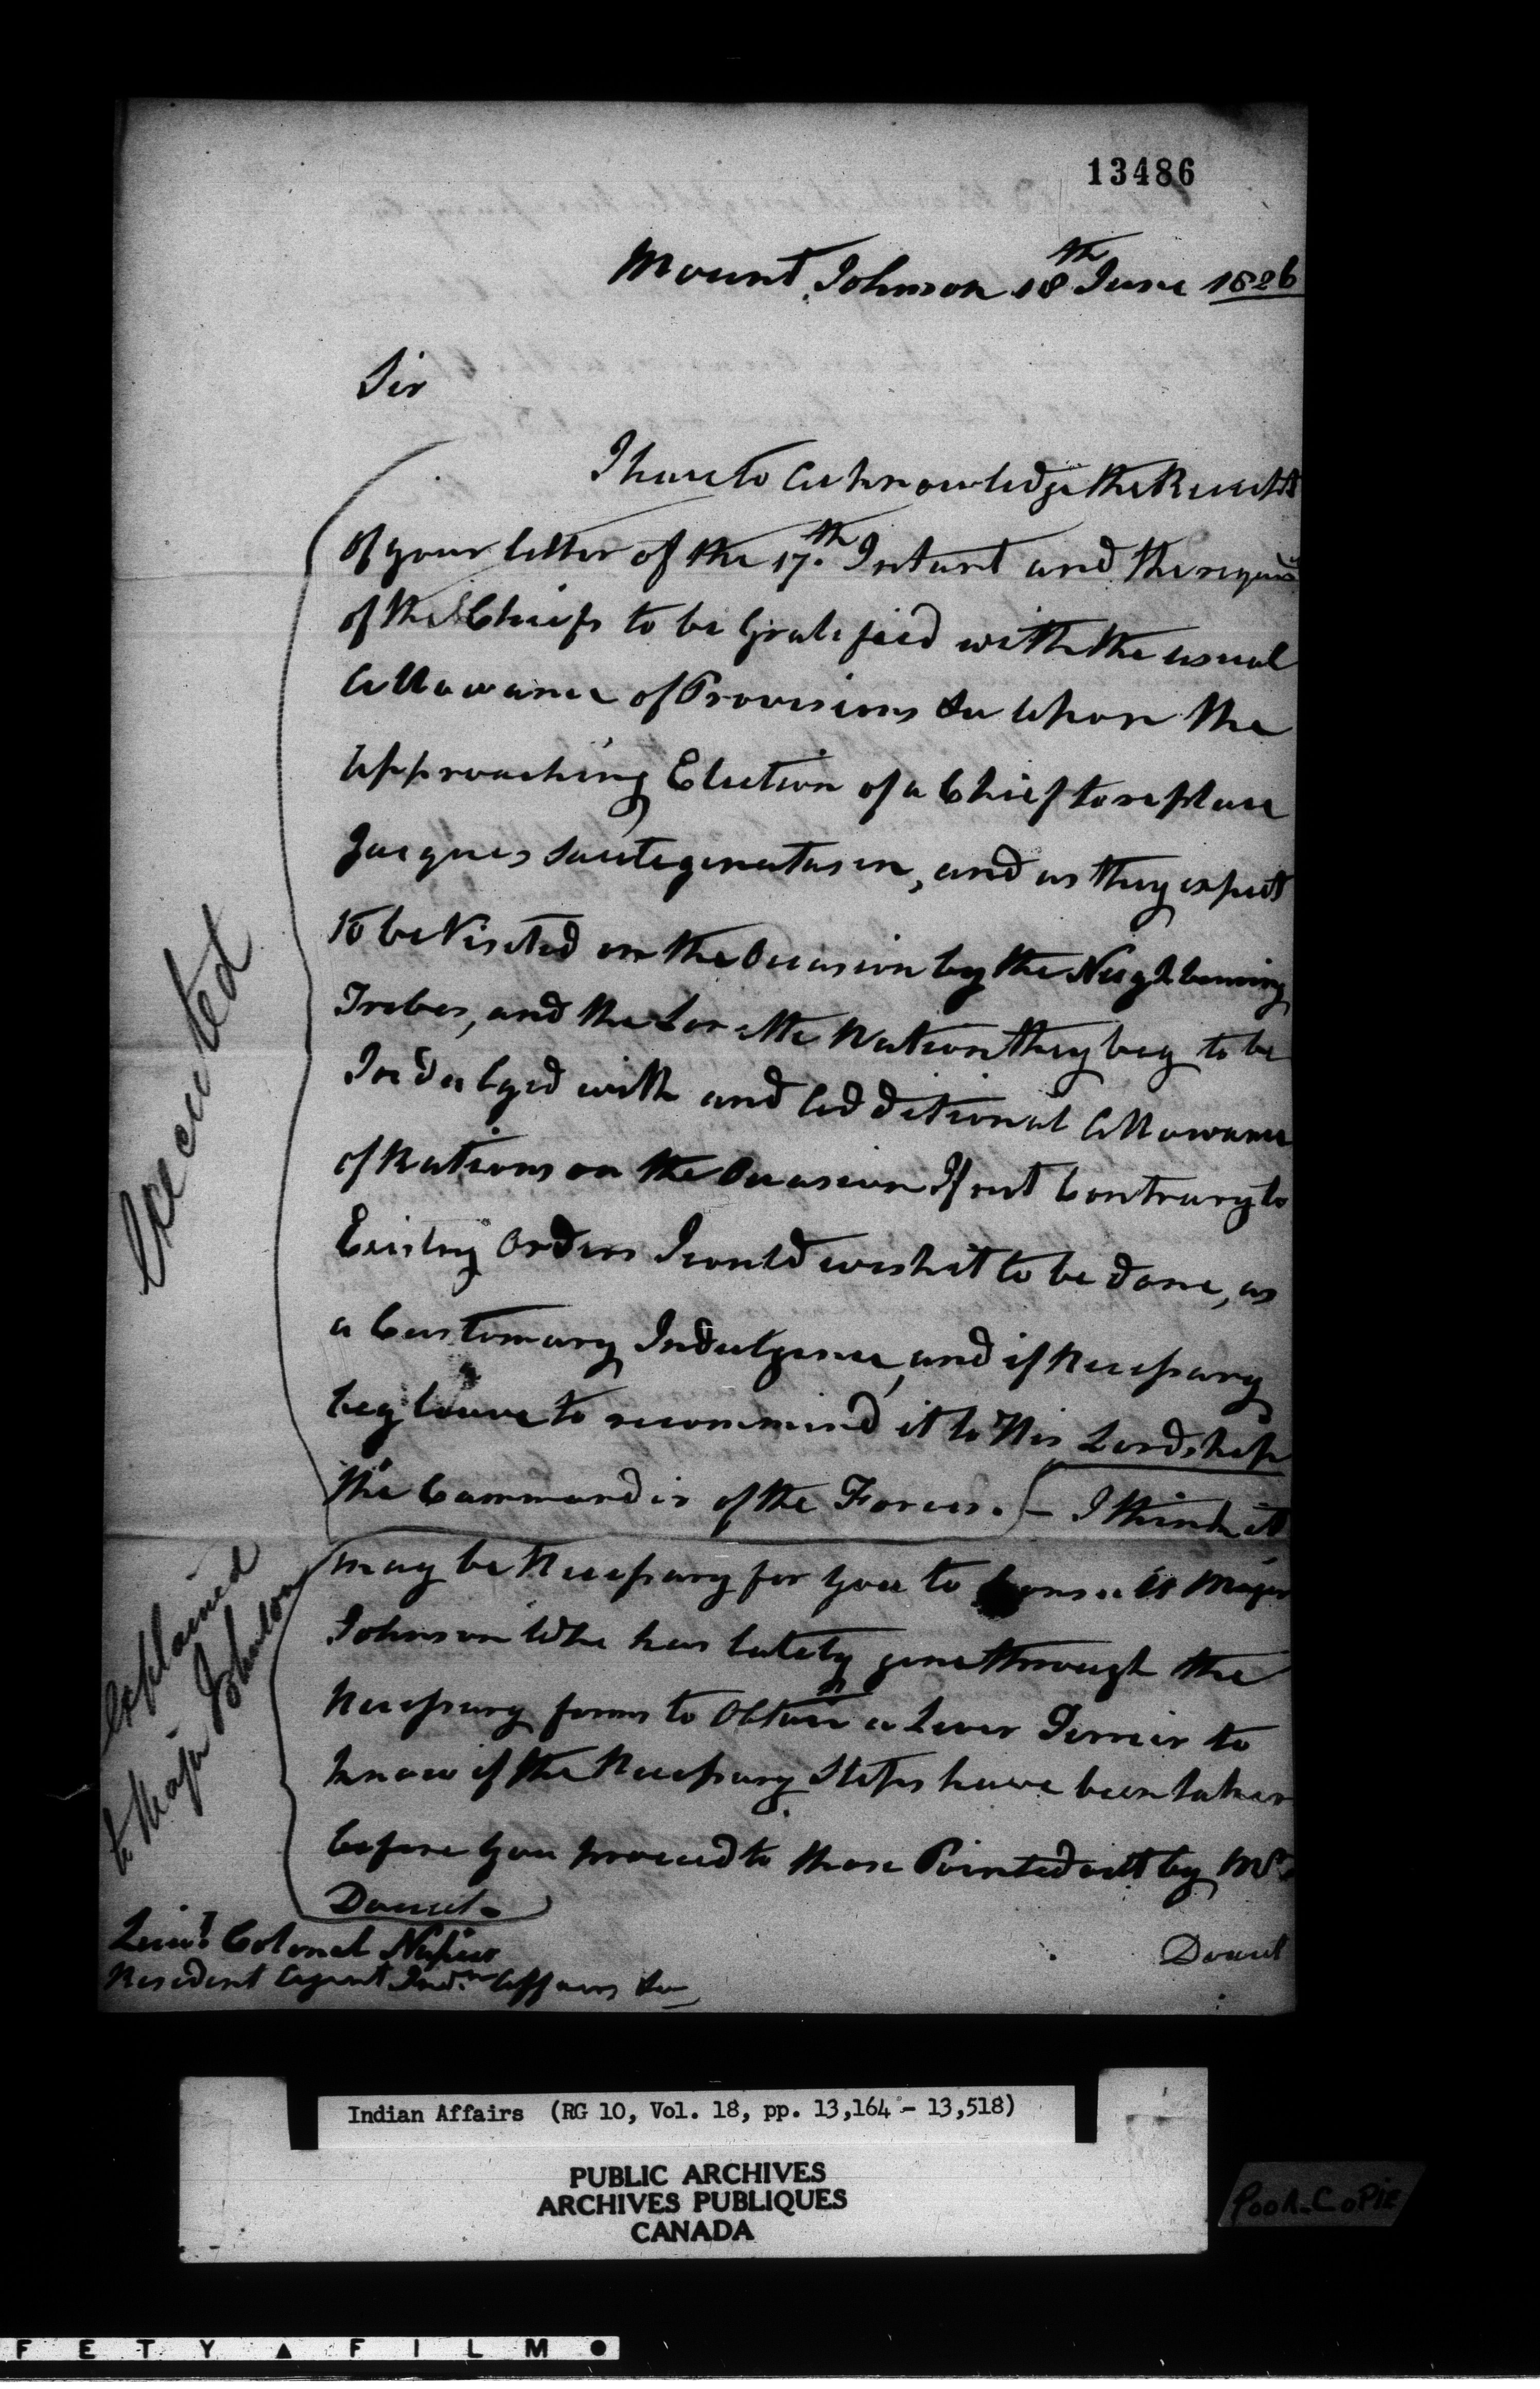 13486
Mount Johnson 18th June 1826
Sir
I have to Acknowledge the Receipt
of your letter of the 17th Intant and the request
of the Chiefs to be Gratified with the usual
Allowance of Provisions &c upon the
approaching Election of a Chief to replace
Jacques and as they expect
to be Visited on the Occasion by the Neighbouring
Tribes, and the Lorette Nation they beg to be
Indulged with and Additional Allowance
of Rations on the Occasion If not Contrary to
Existing Orders I could wish it to be done, as
a Customary Indulgence, and if Necessary
beg leave to recommend it to His Lordship
the Commander of the Forces. - I think it
may be Necessary for you to Consult Major
Johnson Who has lately gone through the
Necessary forms to Obtain a Terrier to
know if the Necessary Steps have been taken
before you proceed to those Pointed out by Mr
Doucet
Lieut Colonel Napier
Resident Agent Indn Affairs &c
Doucet
Executed
explained
to Major Johnson
Indian Affairs (RG 10, Vol. 18, pp. 13,164 - 13,518)
PUBLIC ARCHIVES
ARCHIVES PUBLIQUES
CANADA
POOR-COPIE
FETY ▲ FILM ●